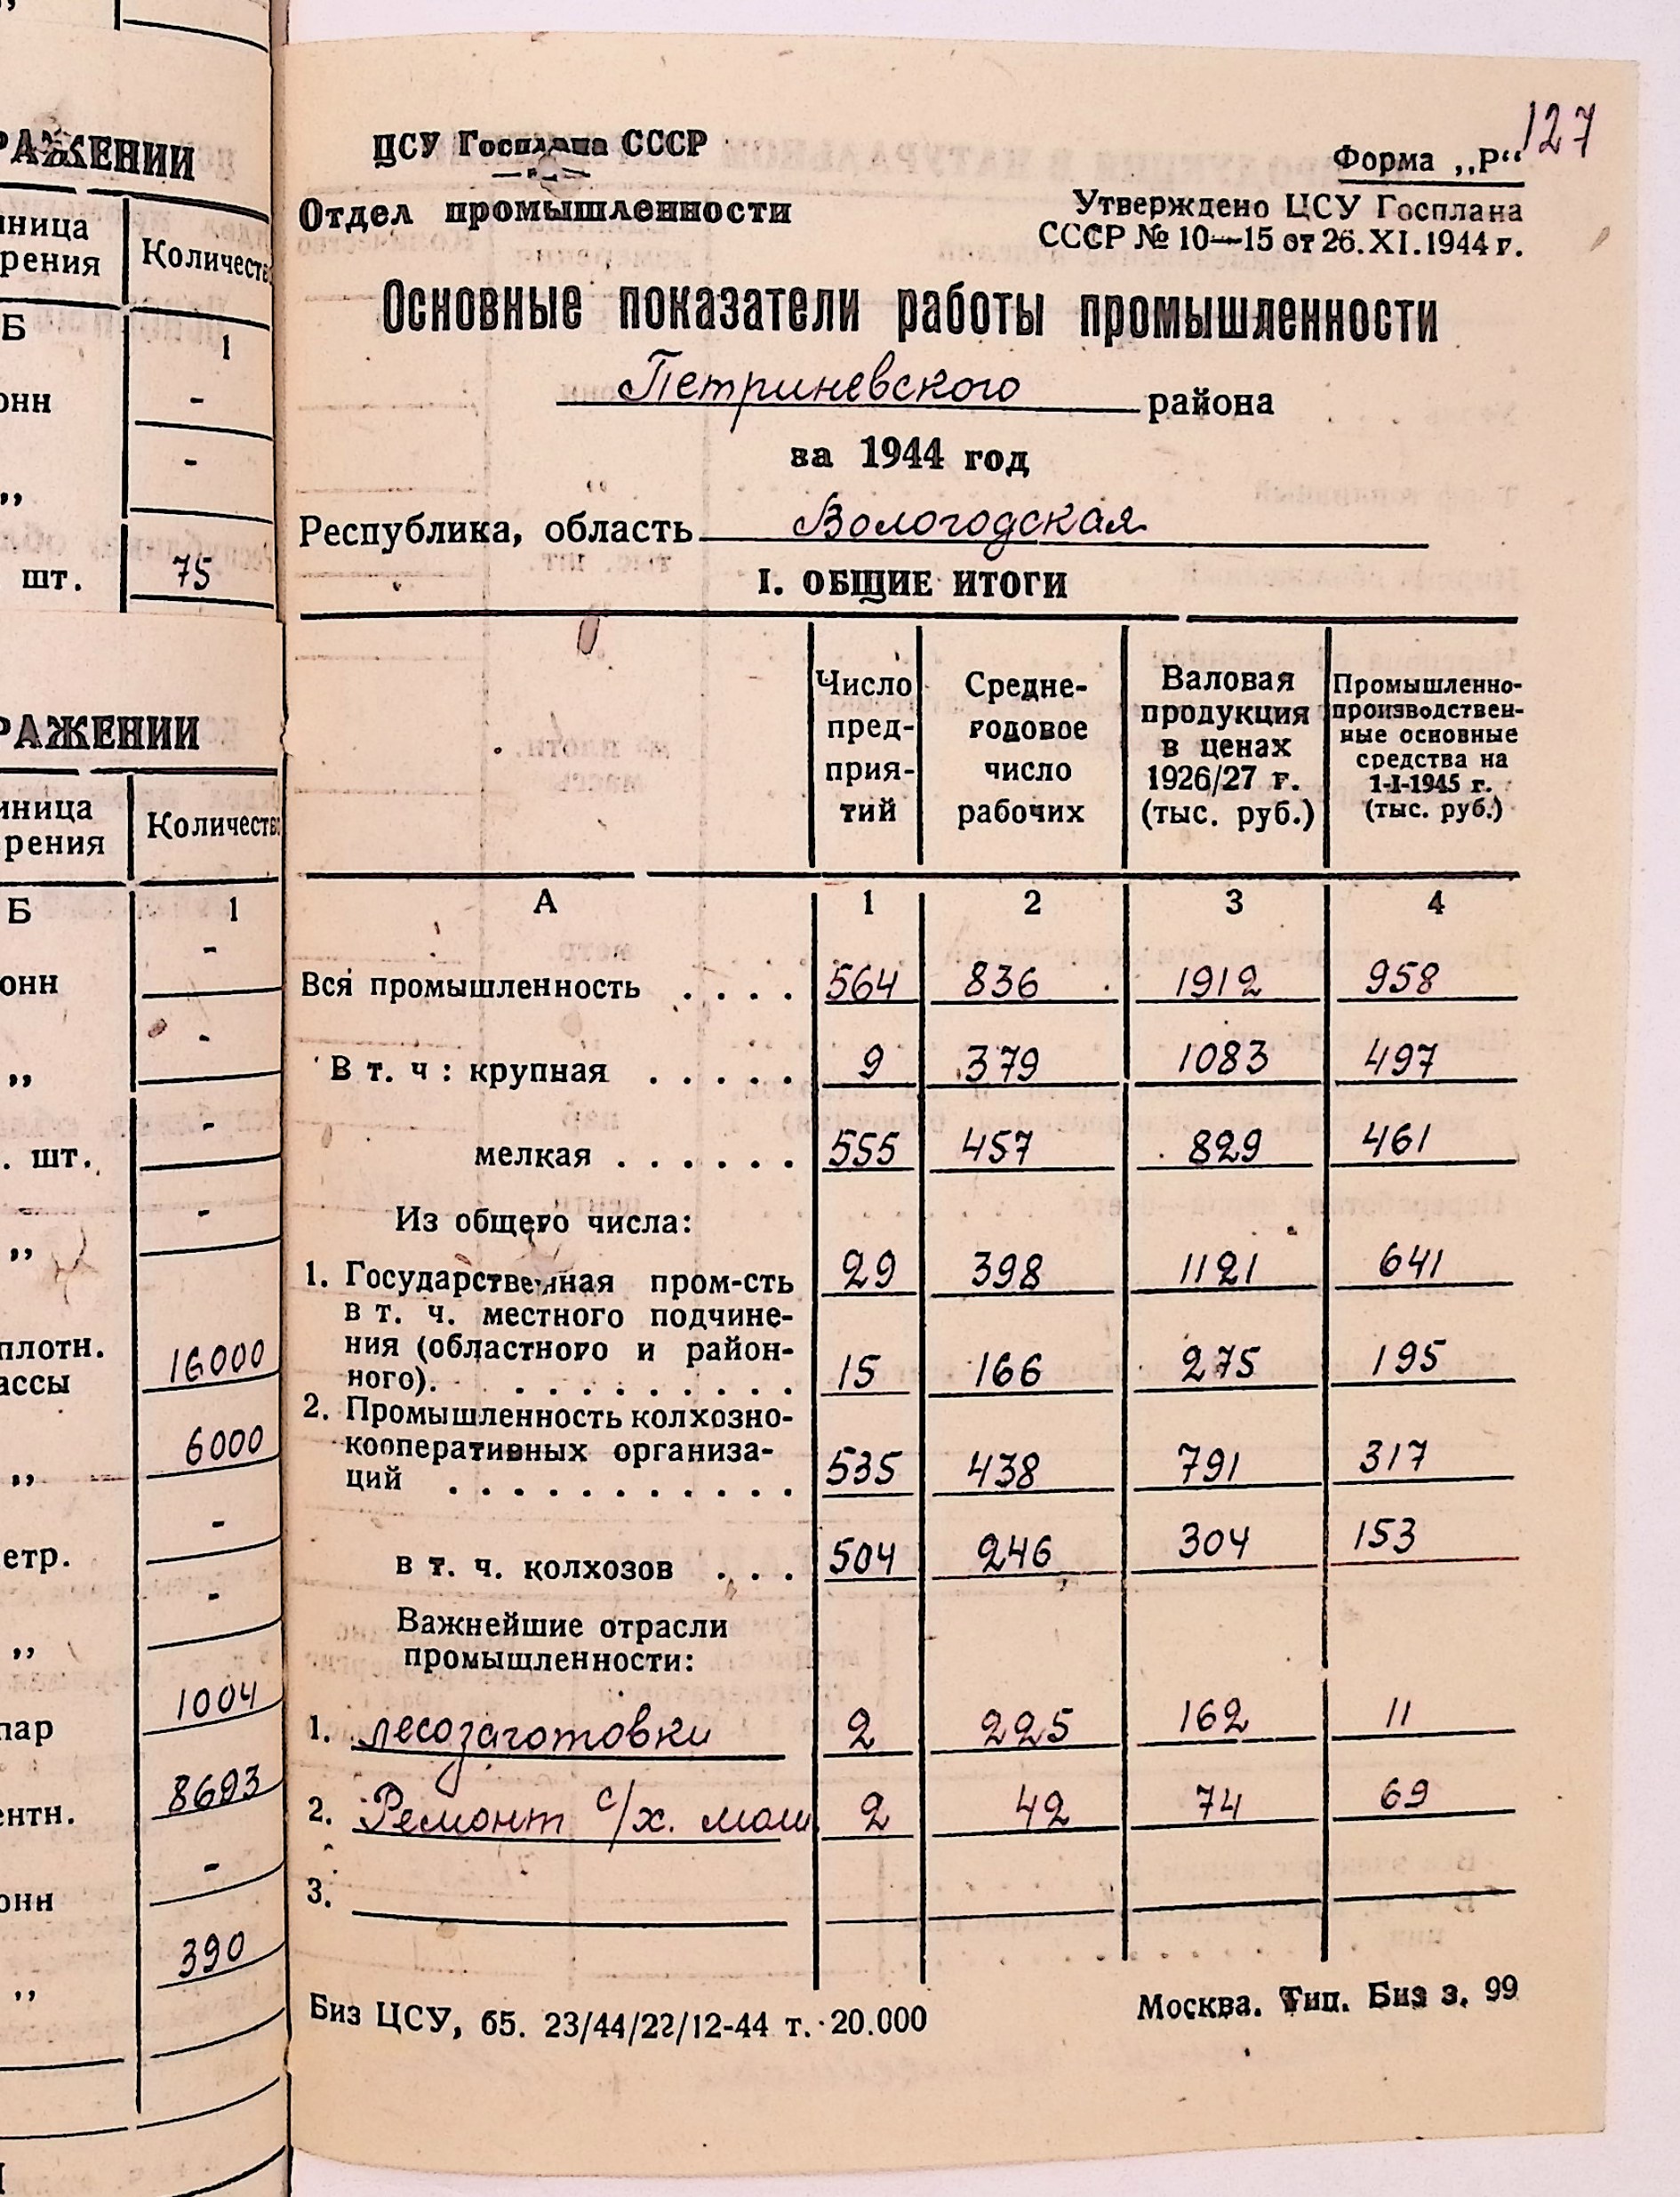 РАЖЕНИИ
иница
рения
Количеств
Б
1
онн
-
„
-
шт.
75
РАЖЕНИИ
иница
рения
Количеств
Б
1
-
онн
-
„
-
. шт.
-
„
плотн.
ассы
16000
6000
„
-
етр.
-
„
1004
пар
8693
ентн.
-
онн
390
„
127
ЦСУ Госплана СССР
Отдел промышленности
Форма „Р“
Утверждено ЦСУ Госплана
СССР № 10—15 от 26.XI.1944 г.
Основные показатели работы промышленности
Петриневского района
за 1944 год
Республика, область Вологодская
I. ОБЩИЕ ИТОГИ
Число пред-прия-тий
Средне-годовое число рабочих
Валовая продукция в ценах 1926/27 г. (тыс. руб.)
Промышленно-производствен-ные основные средства на 1-I-1945 г. (тыс. руб.)
А 1 2 3 4
Вся промышленность . . . . 564 836 1912 958
В т. ч : крупная . . . . . 9 379 1083 497
мелкая . . . . . . 555 457 829 461
Из общего числа:
1. Государственная пром-сть 29 398 1121 641
в т. ч. местного подчине-
ния (областного и район-
ного). . . . . . . . . . . 15 166 275 195
2. Промышленность колхозно-
кооперативных организа-
ций . . . . . . . . . . . 535 438 791 317
в т. ч. колхозов . . . 504 246 304 153
Важнейшие отрасли
промышленности:
1. лесозаготовки 2 225 162 11
2. Ремонт с/х. маш 2 42 74 69
3.
Биз ЦСУ, 65. 23/44/22/12-44 т. 20.000
Москва. Тип. Биз з. 99